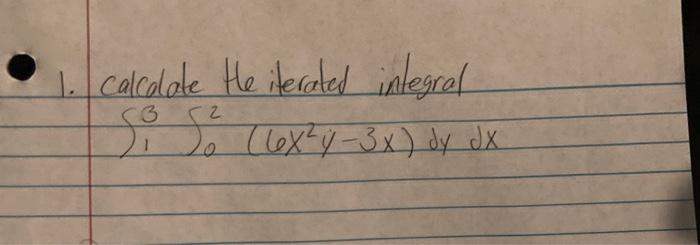 1. calcolate the iterated integral
∫₁³ ∫₀² (6x²y-3x) dy dx